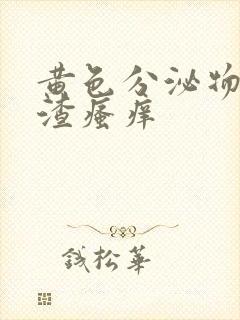 黄色分泌物
渣瘙痒
钱松华